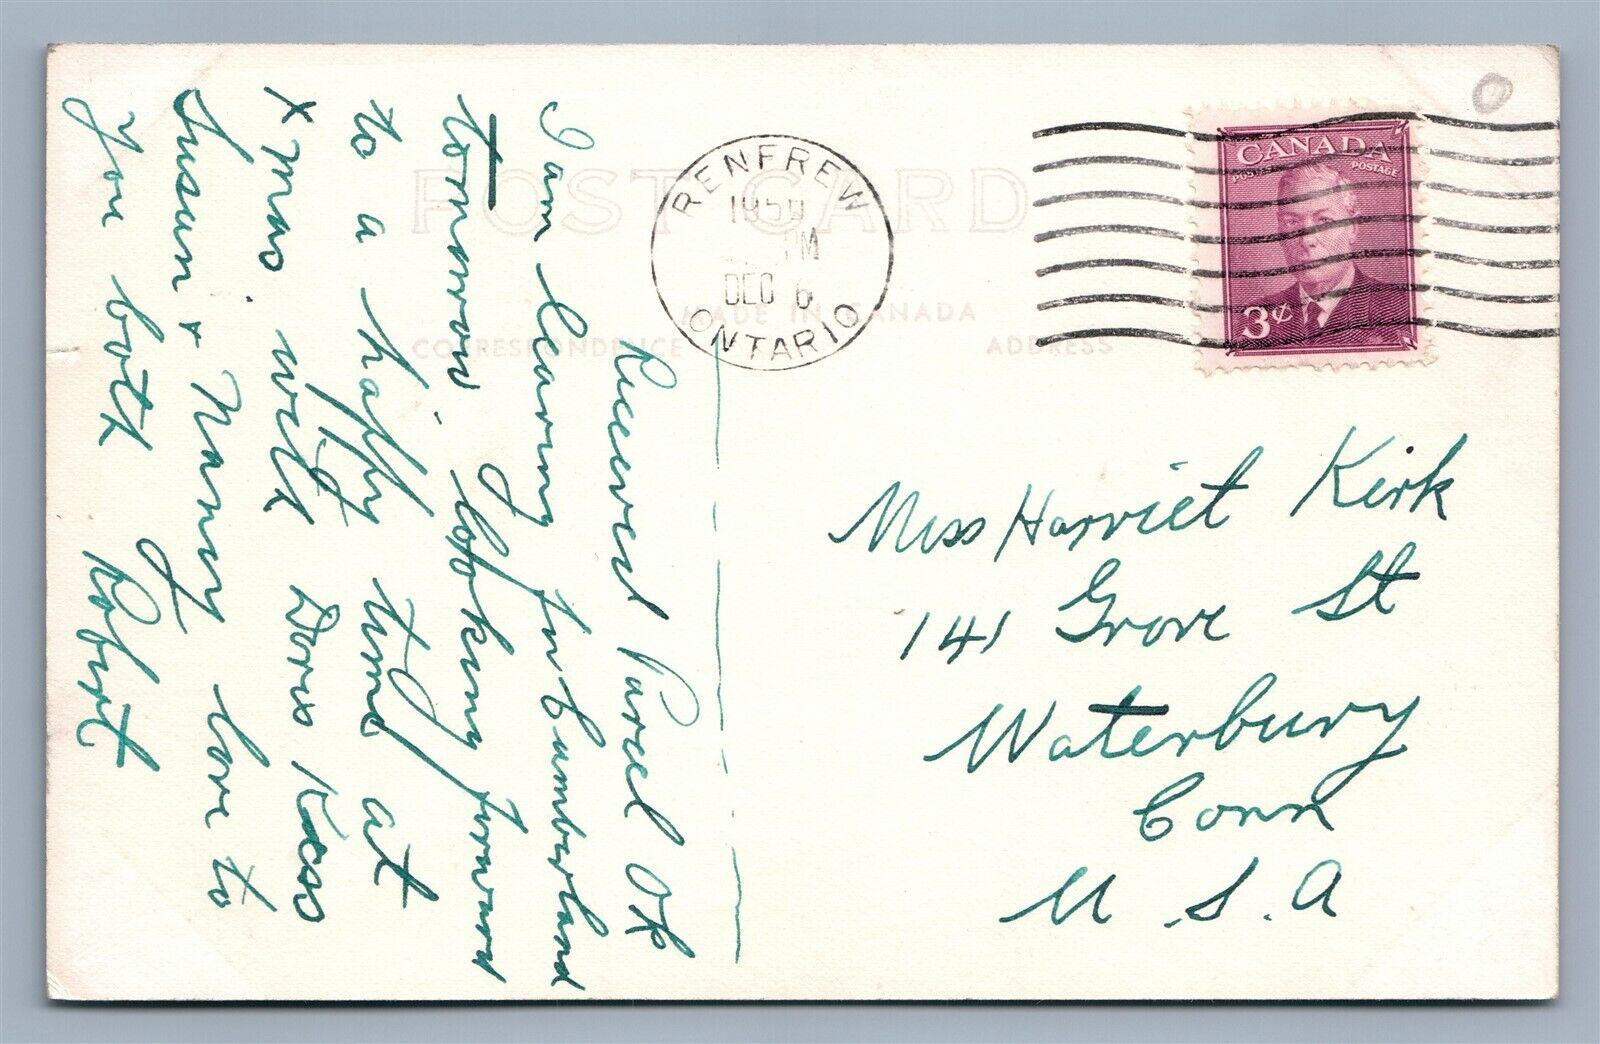 POST CARD
MADE IN CANADA
CORRESPONDENCE
ADDRESS
RENFREW
PM
DEC 6
ONTARIO
CANADA
POSTES POSTAGE
3¢
Received Parcel Ok
I am leaving for Cumberland
tomorrow. looking forward
to a happy time at
Xmas. with Doris Kass
Susan + Nanny love to
You both Robert
Miss Harriet Kirk
141 Grove St
Waterbury
Conn
U.S.A